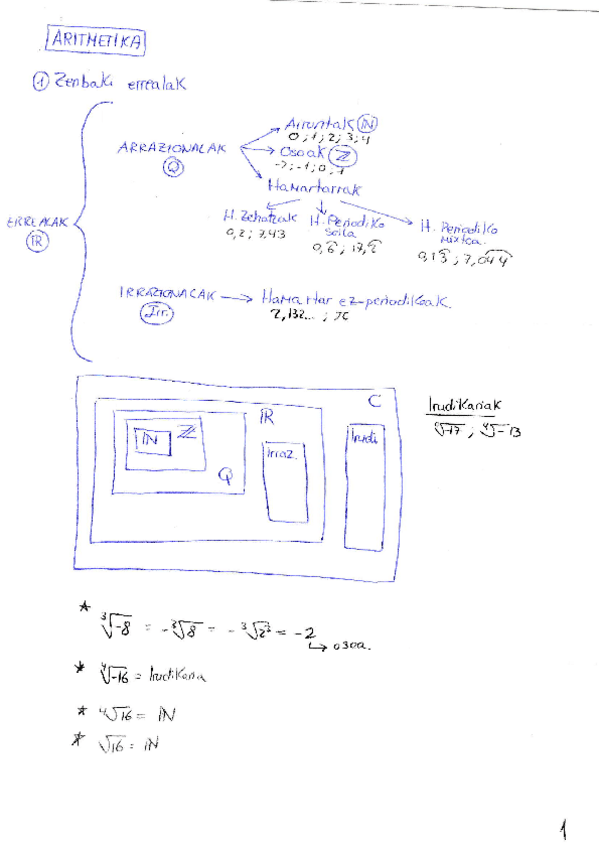 ARITMETIKA
① Zenbaki errealak
ERREALAK
IR
ARRAZIONALAK
Q
Arruntak IN
0 ; 1 ; 2 ; 3 ; 4
Osoak Z
-7 ; -1 ; 0 ; 1
Hamartarrak
H. Zehatzak
0,2 ; 7,43
H. Periodiko
soila
H. Periodiko
mixtoa.
IRRAZIONALAK → Hamartar ez-periodikoak.
Irr.
2,132...
C
IR
IN
Z
Q
Irraz.
Irudi
Irudikariak
* ∛-8 = -∛8 = -∛2³ = -2
↳ osoa.
* ∜-16 = Irudikaria
* ∜16 = IN
* √16 = IN
1